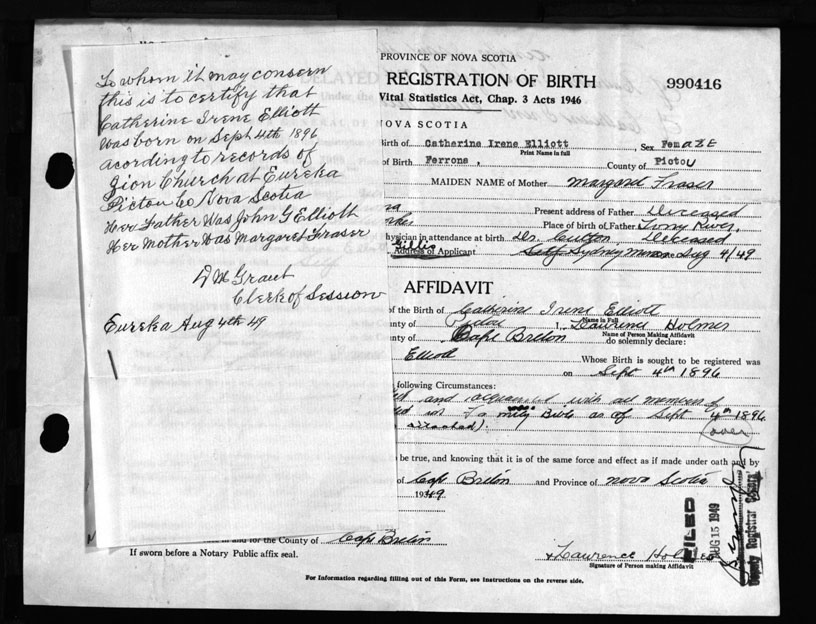 To whom it may concern
this is to certify that
Catherine Irene Elliott
was born on Sept 4th 1896
acording to records of
Zion Church at Eureka
Pictou Co Nova Scotia
Her Father Was John G Elliott
Her Mother Was Margaret Fraser
D M Grant
Clerk of Session
Eureka Aug 4th 49
PROVINCE OF NOVA SCOTIA
REGISTRATION OF BIRTH 990416
Vital Statistics Act, Chap. 3 Acts 1946
NOVA SCOTIA
Birth of Catherine Irene Elliott , Sex FemaLE
Print Name in full
of Birth Ferrona , County of Pictou
MAIDEN NAME of Mother Margaret Fraser
Present address of Father Deceased
Place of birth of Father Ivory River,
physician in attendance at birth Dr. Deceased
Gillis
Address of Applicant Sydney Mines Aug 4/49
AFFIDAVIT
of the Birth of Catherine Irene Elliott
Name in Full
County of Pictou I, Lawrence Holmes
Name of Person Making Affidavit
County of Cape Breton do solemnly declare:
Elliott Whose Birth is sought to be registered was
on Sept 4th 1896
following Circumstances:
and acquainted with all members of
in Family Bible as of Sept 4th 1896
attached).
(over)
be true, and knowing that it is of the same force and effect as if made under oath and by
of Cape Breton and Province of Nova Scotia
1949
in and for the County of Cape Breton
If sworn before a Notary Public affix seal.
Lawrence Holmes
Signature of Person making Affidavit
FILED
AUG 15 1949
Deputy Registrar General
For Information regarding filling out of this Form, see instructions on the reverse side.